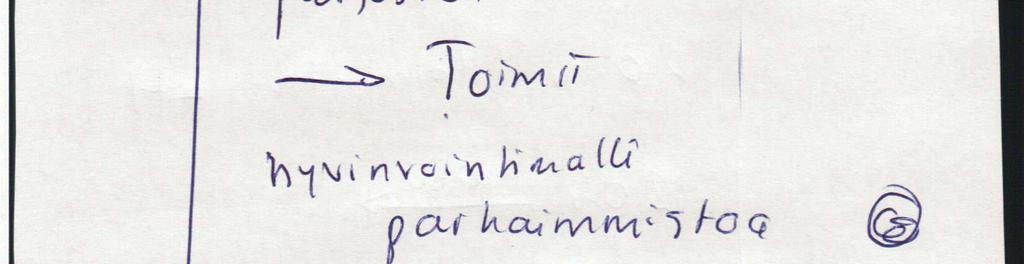 → Toimii
hyvinvointimalli
parhaimmistoa